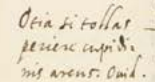 Otia si tollas
periere cupidi:
nis arcus. Ouid.